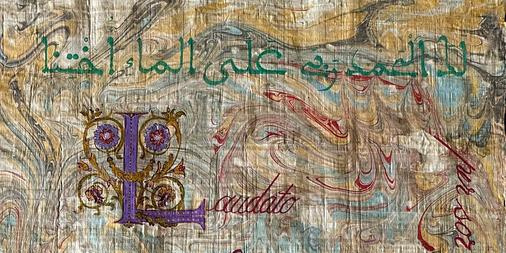 لك الحمد ربي على الماء أختنا
Laudato
per sor